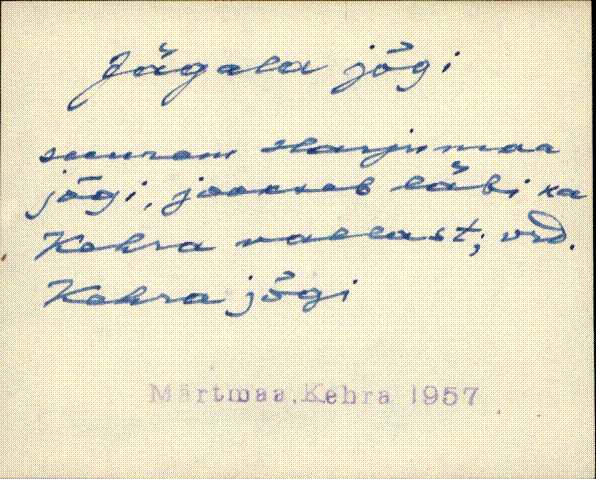 Jägala jõgi
suurem Harjumaa
jõgi, jookseb läbi ka
Kehra vallast; vrd.
Kehra jõgi
Märtmaa, Kehra 1957